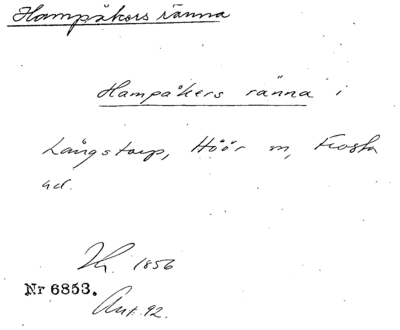 Hampåkers ränna
Hampåkers ränna i
Långstorp, Höör m, Frosta
ad.
1856
Nr 6853.
Ant. 92.